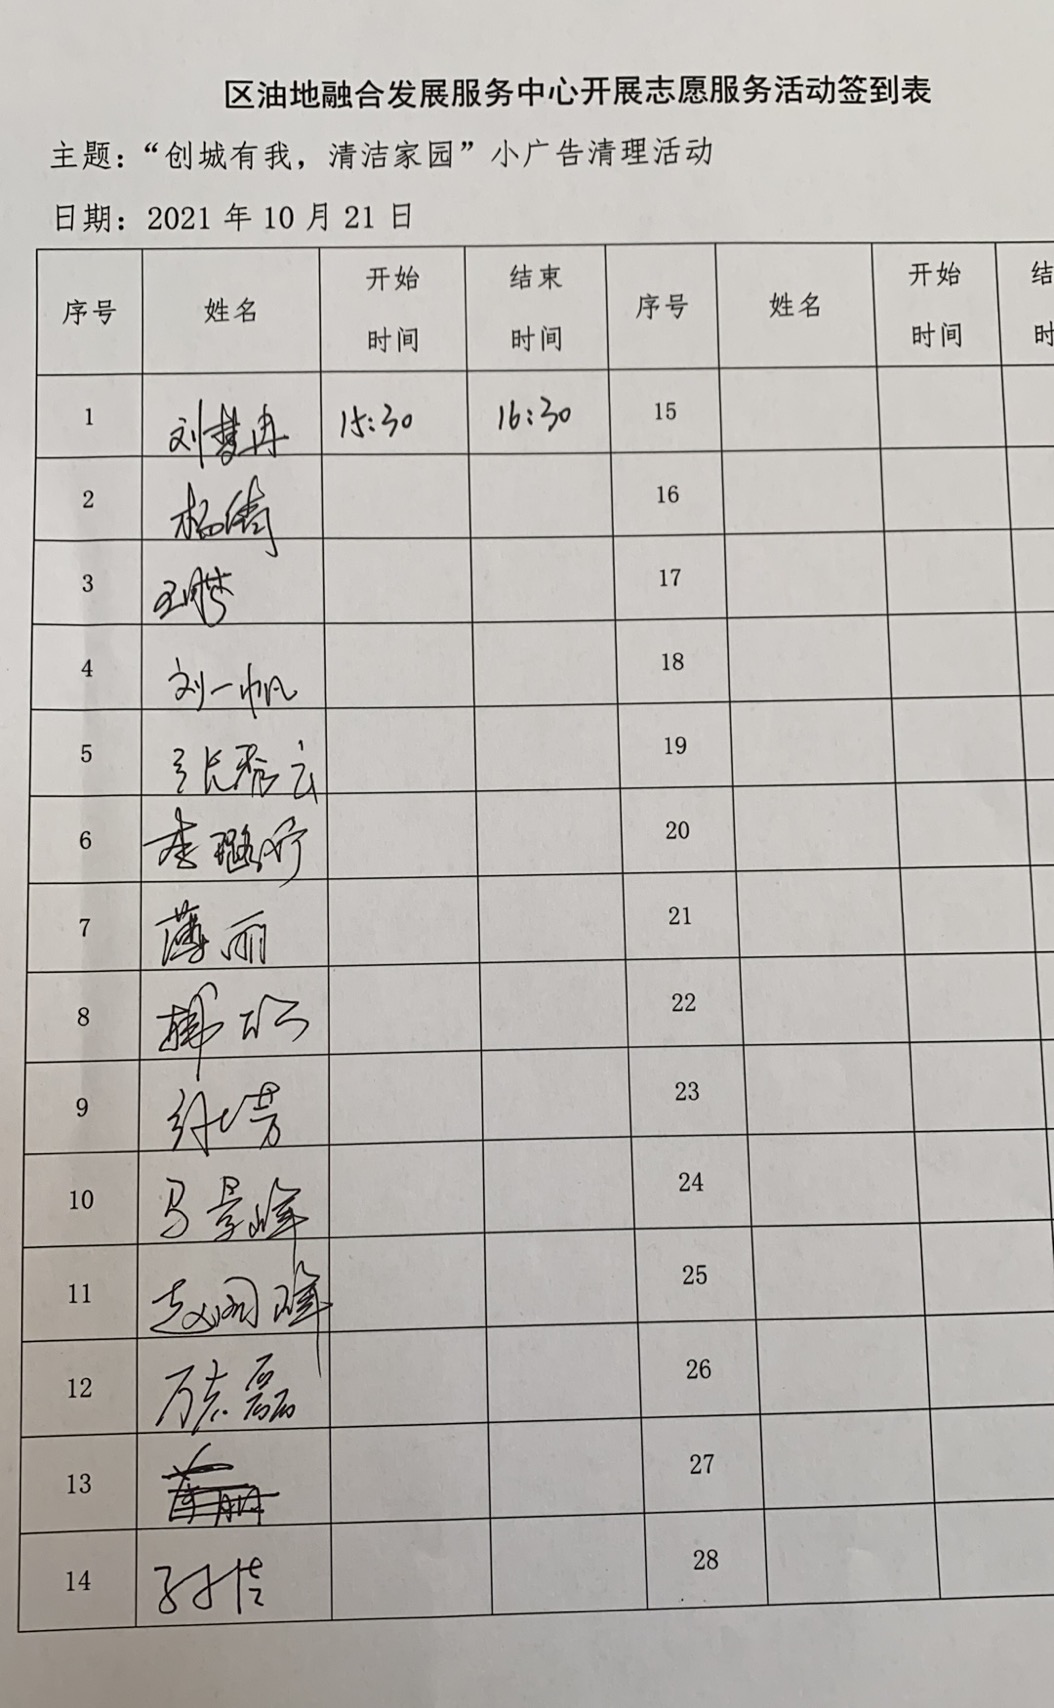 区油地融合发展服务中心开展志愿服务活动签到表
主题：“创城有我，清洁家园”小广告清理活动
日期：2021 年 10 月 21 日
序号 姓名 开始时间 结束时间 序号 姓名 开始时间 结 时
1 刘梦冉 15:30 16:30 15
2 杨倩 16
3 17
4 刘一帆 18
5 张秀云 19
6 李璐 20
7 薄丽 21
8 韩 22
9 23
10 马景峰 24
11 赵国峰 25
12 万志磊 26
13 27
14 孙佳 28